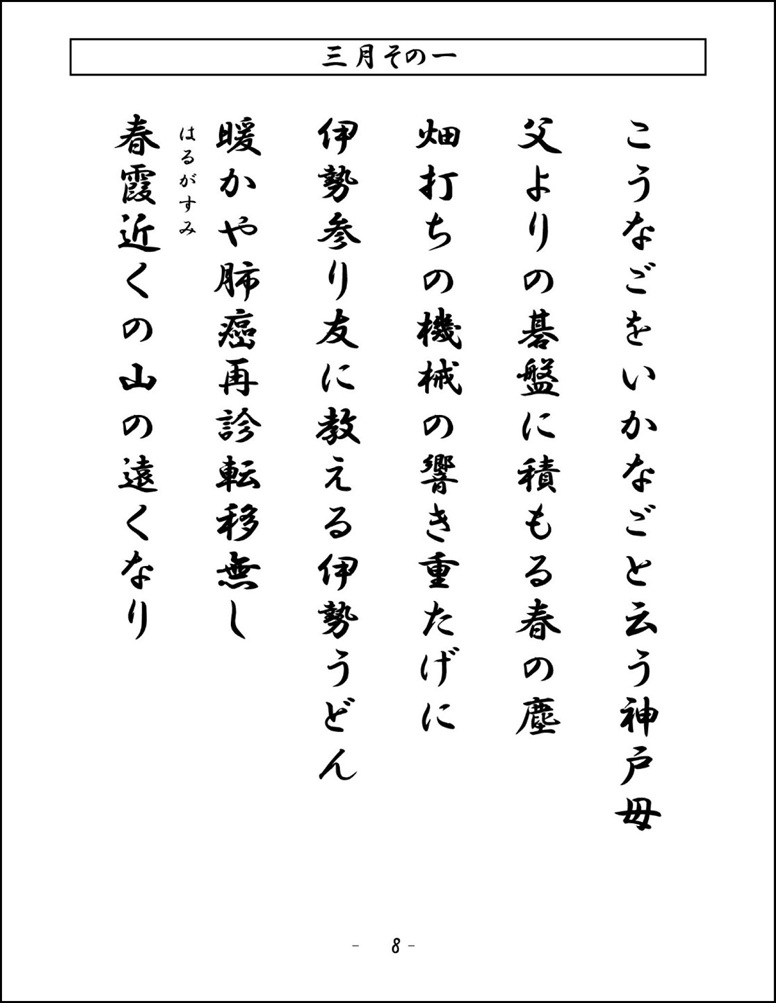 三月その一
こうなごをいかなごと云う神戸母
父よりの碁盤に積もる春の塵
畑打ちの機械の響き重たげに
伊勢参り友に教える伊勢うどん
暖かや肺癌再診転移無し
はるがすみ
春霞近くの山の遠くなり
- 8 -